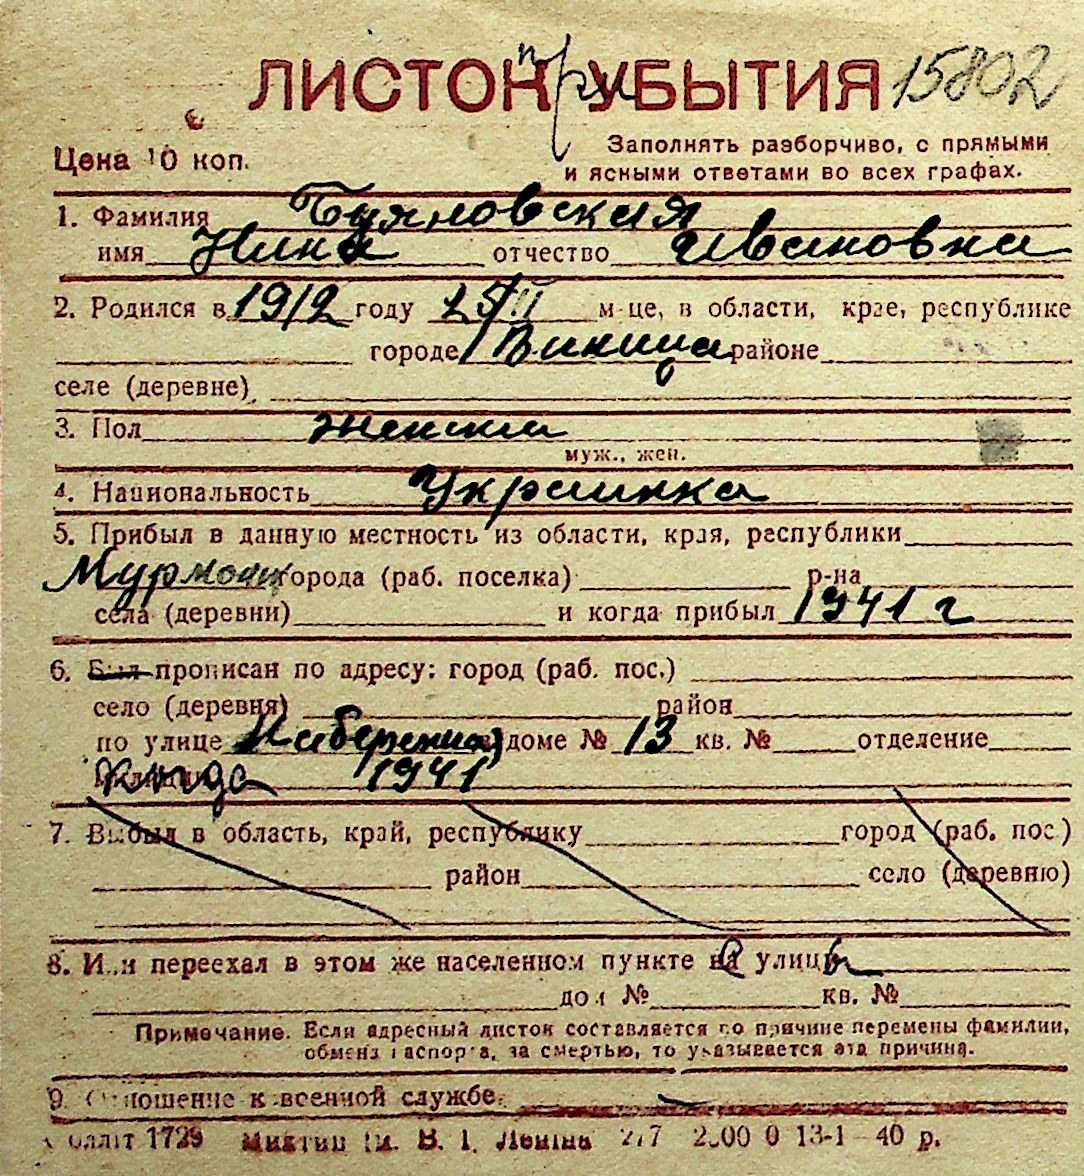 ЛИСТОК при УБЫТИЯ 15802
Цена 10 коп.
Заполнять разборчиво, с прямыми
и ясными ответами во всех графах.
1. Фамилия Бужновская
имя Нина отчество Ивановна
2. Родился в 1912 году 25/III м-це, в области, крае, республике
городе Виница районе
селе (деревне)
3. Пол женский
муж., жен.
4. Национальность Украинка
5. Прибыл в данную местность из области, края, республики
Мурманск города (раб. поселка) р-на
села (деревни) и когда прибыл 1941 г
6. Был прописан по адресу: город (раб. пос.)
село (деревня) район
по улице Набережная доме № 13 кв. № отделение
Когда 1941
7. Выбыл в область, край, республику город (раб. пос)
район село (деревню)
8. Или переехал в этом же населенном пункте с улицы
дом № кв. №
Примечание. Если адресный листок составляется по причине перемены фамилии,
обмена паспорта, за смертью, то указывается эта причина.
9. Отношение к военной службе.
1729 В. І. Леніна 13-1 40 р.